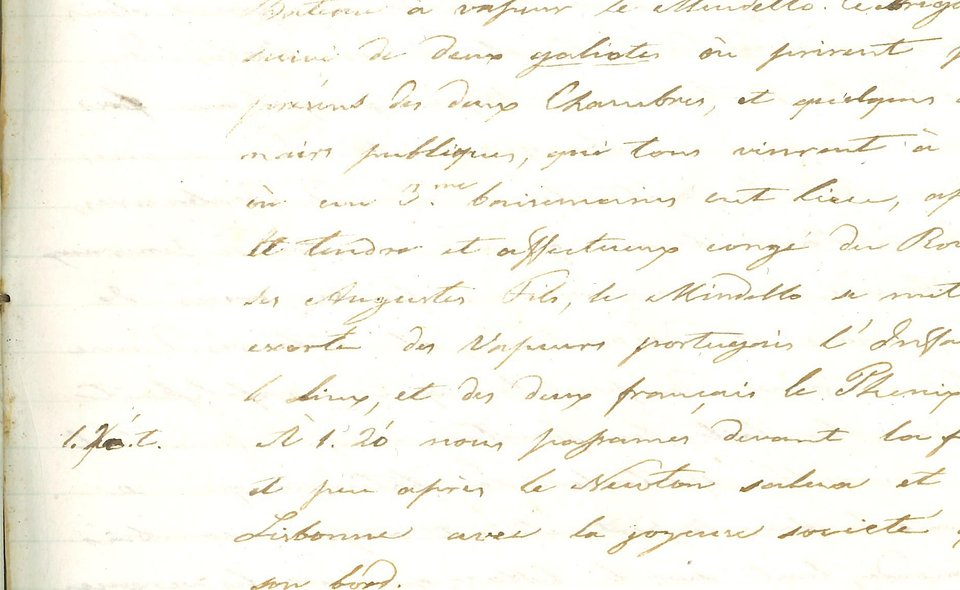 Bateau à vapeur le Mindello. Ce brig
suivi de deux galiotes où prirent p
férens des deux Chambres, et quelques
naires publiques, qui tous vinrent à
où un 3.me baisemains eut lieu, ap
et tendre et affectueux congé du Roi
ses Augustes Fils, le Mindello se mit
escorté des Vapeurs portugais l'Infa
le Linx, et des deux français le Phenix
1. 20. t. À 1. 20 nous passames devant la f
et peu après le Newton salua et
Lisbonne avec la joyeuse societé
son bord.